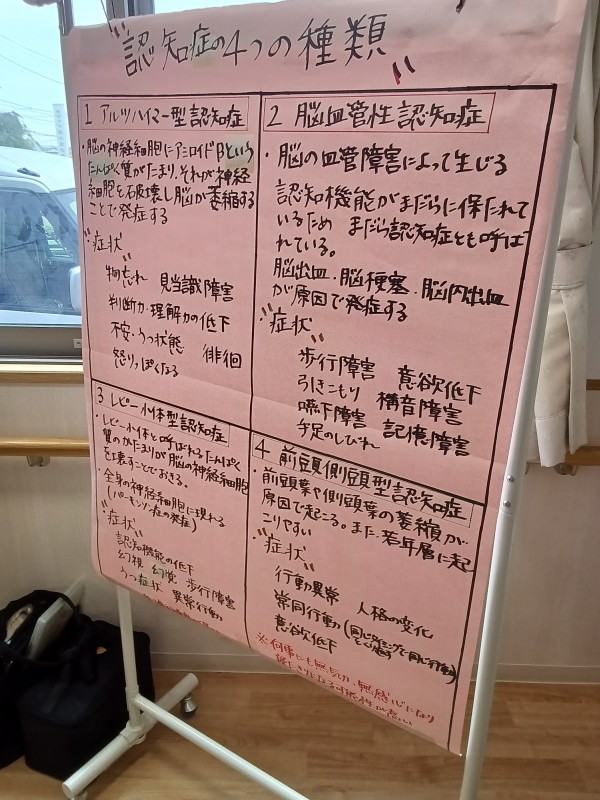 認知症の4つの種類
1 アルツハイマー型認知症
・脳の神経細胞にアミロイドβという
たんぱく質がたまり、それが神経
細胞を破壊し脳が萎縮する
ことで発症する
"症状"
物忘れ 見当識障害
判断力・理解力の低下
不安・うつ状態 徘徊
怒りっぽくなる
2 脳血管性認知症
・脳の血管障害によって生じる
認知機能がまだらに保たれて
いるため まだら認知症とも呼ば
れている。
脳出血・脳梗塞・脳内出血
が原因で発症する
"症状"
歩行障害 意欲低下
引きこもり 構音障害
嚥下障害 記憶障害
手足のしびれ
3 レビー小体型認知症
・レビー小体と呼ばれるたんぱく
質のかたまりが脳の神経細胞
を壊すことでおきる。
・全身の神経細胞に現れる
(パーキンソン症の発症)
"症状"
認知機能の低下
幻視 幻覚 歩行障害
うつ症状 異常行動
4 前頭側頭型認知症
・前頭葉や側頭葉の萎縮が
原因で起こる。また、若年層に起
こりやすい
"症状"
行動異常 人格の変化
常同行動(同じタイミングで同じ行動)
意欲低下
※何事にも無気力・無感心になり
寝たきりになる可能性が高い